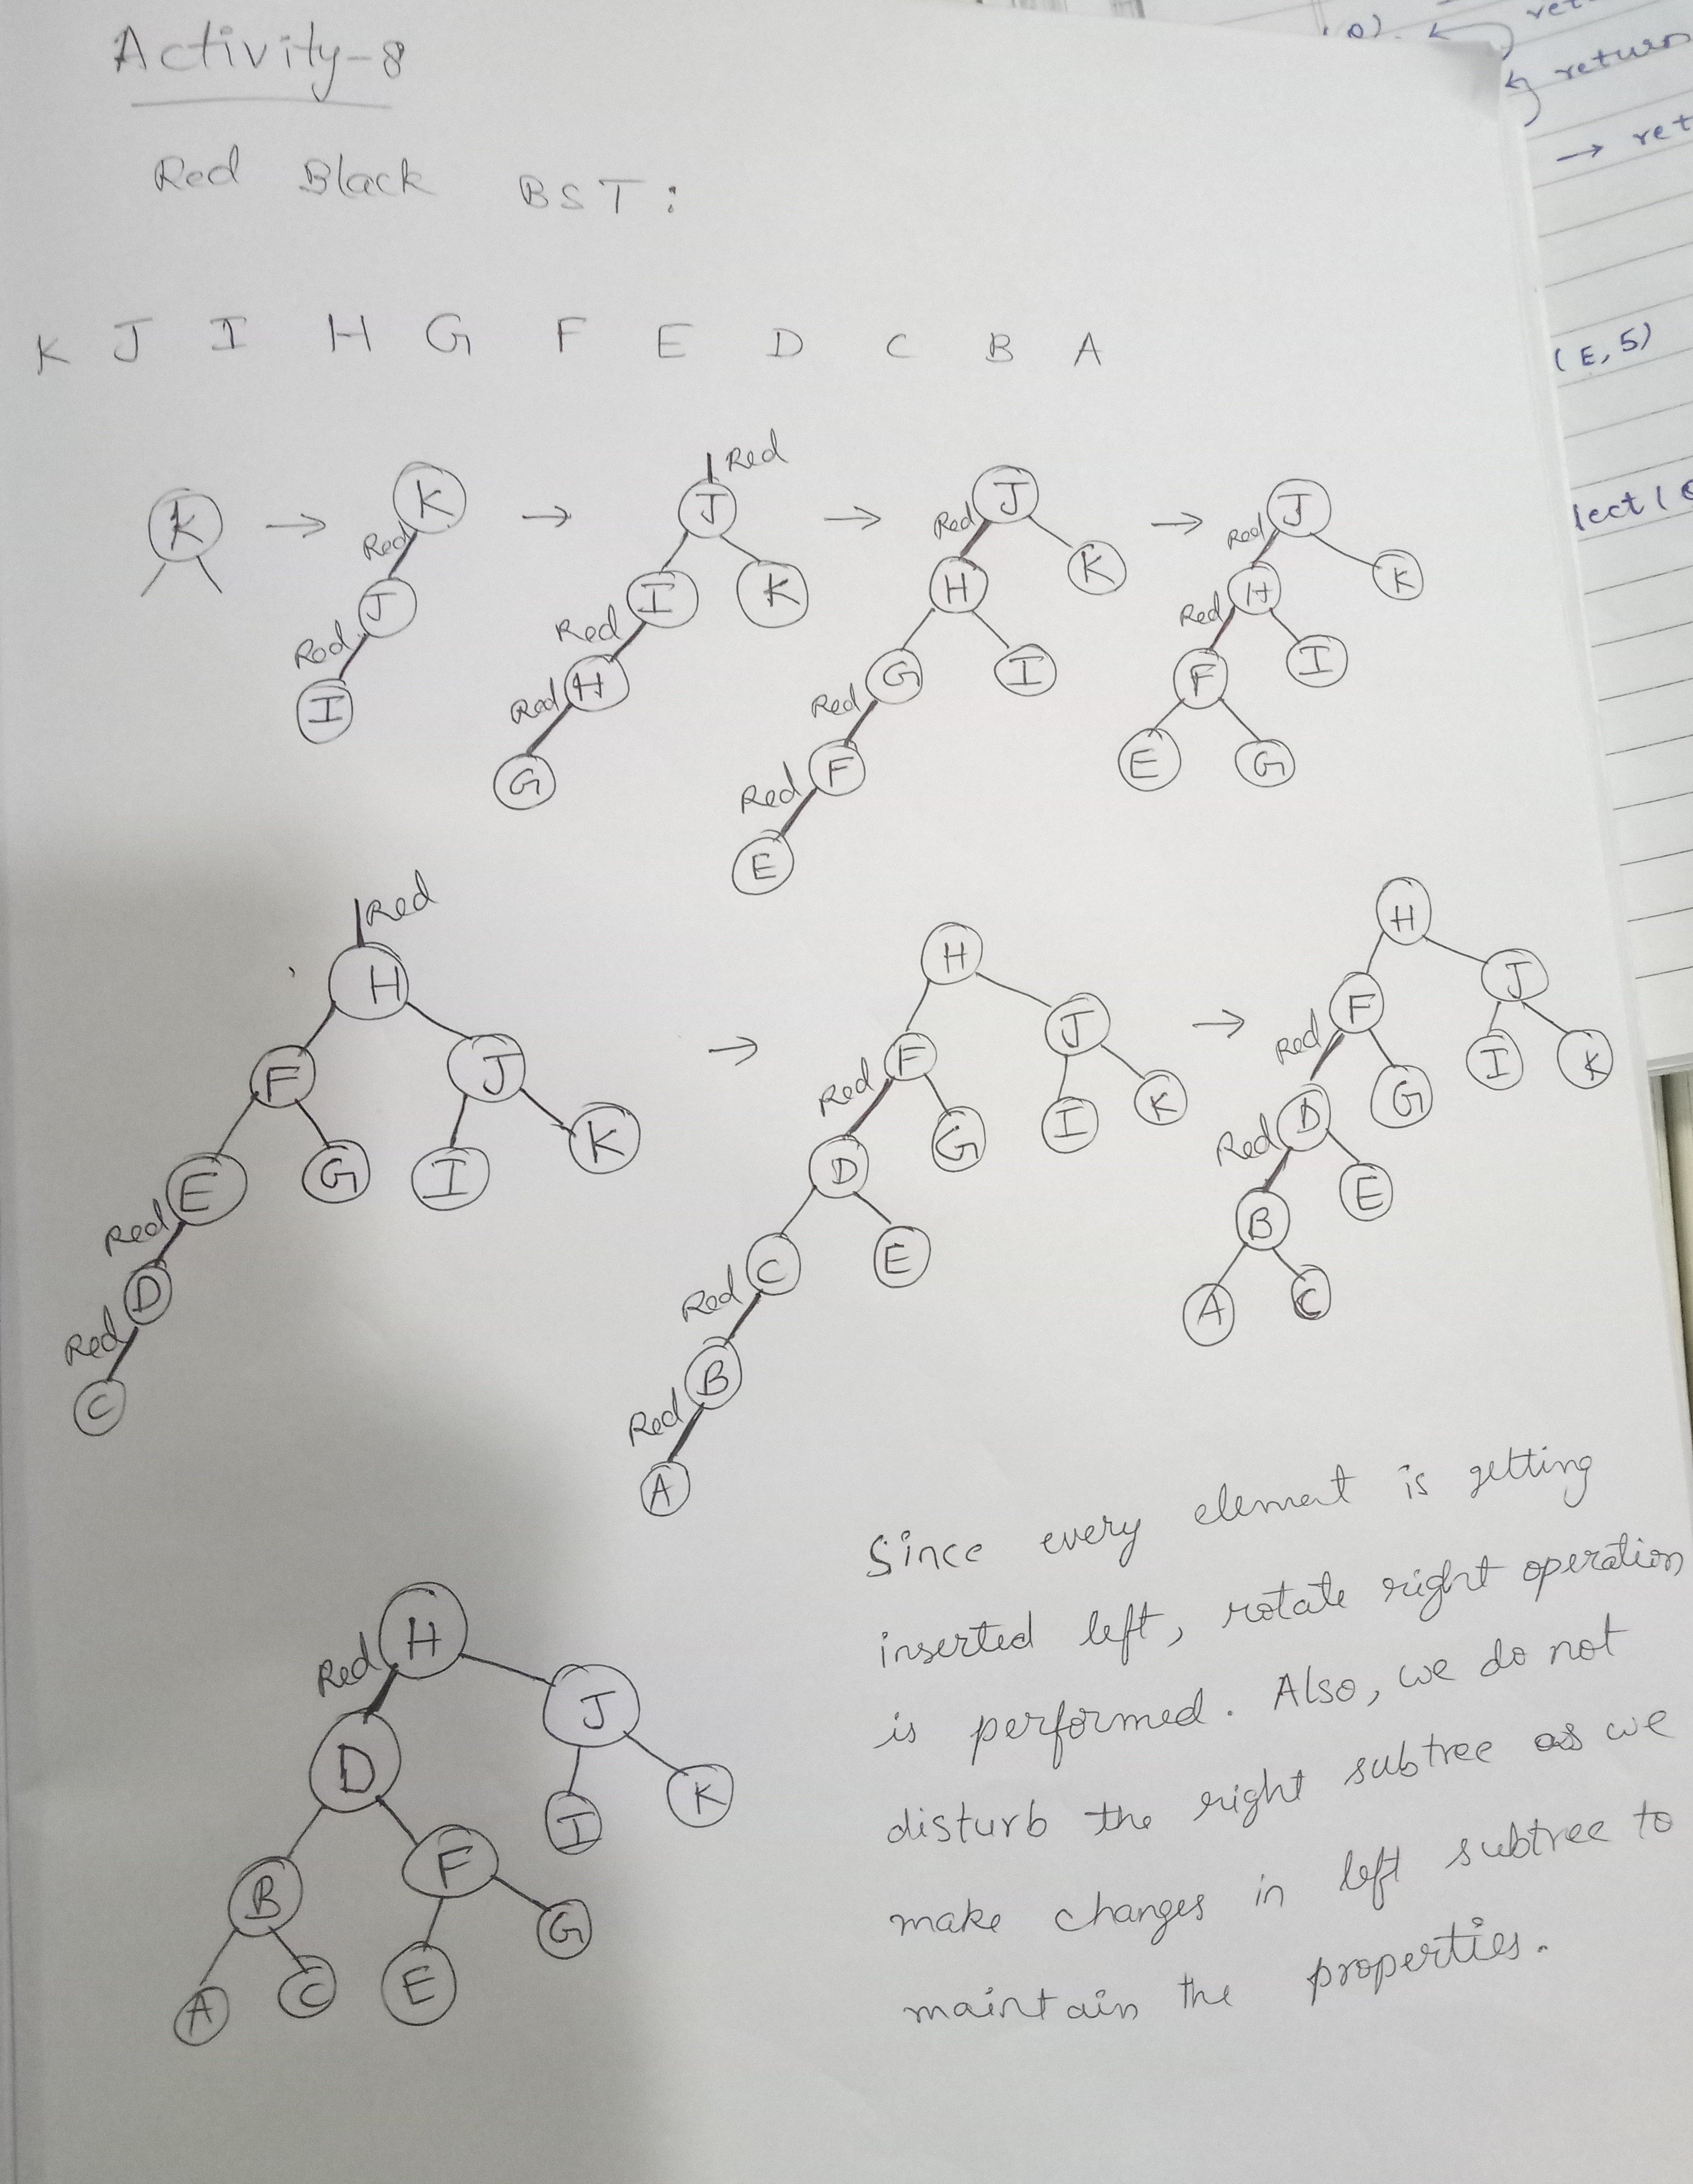 Activity-8
Red Black BST:
K J I H G F E D C B A
K → Red K → Red → Red J → Red J
J
Red
I
J
I
K
Red
H
Red
G
J
H
K
G
I
Red
F
Red
E
H
K
Red
F
I
E
G
Red
H
F
J
E
G
I
K
Red
D
Red
C
→
H
F
J
Red
D
G
I
K
C
E
Red
B
Red
A
→
H
F
J
Red
D
G
I
K
Red
B
E
A
C
Red
H
D
J
B
F
I
K
A
C
E
G
Since every element is getting
inserted left, rotate right operation
is performed. Also, we do not
disturb the right subtree as we
make changes in left subtree to
maintain the properties.
(0). ←
ret
← return
→ ret
(E, 5)
lect (